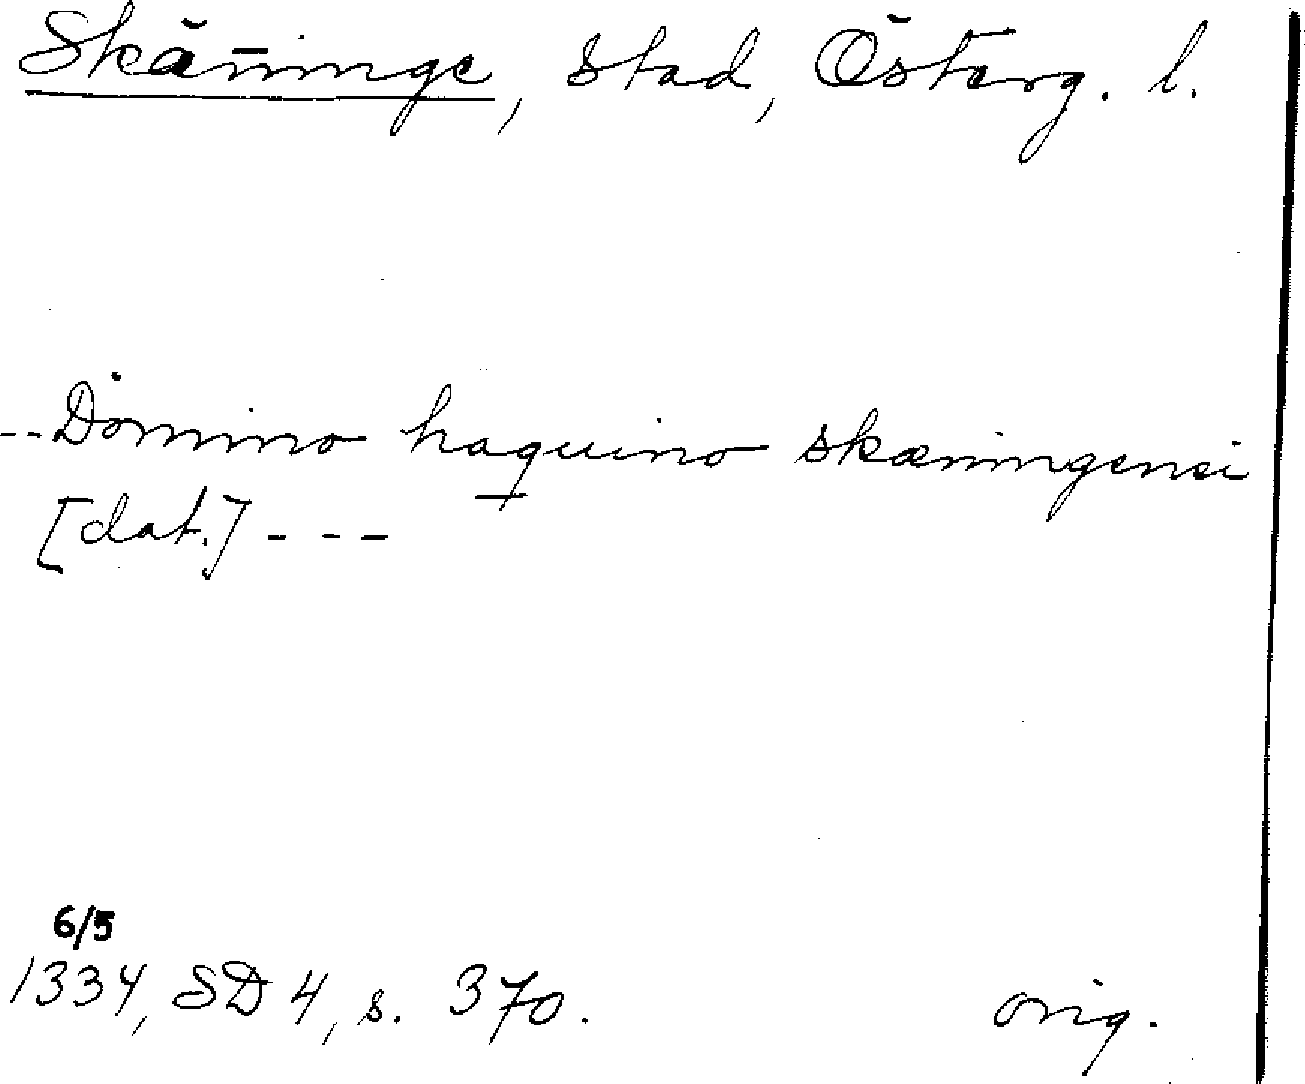 Skänninge, stad, Österg. l.
--Domino haquino skæningensi
[dat.] - - -
6/5
1334, SD 4, s. 370.
orig.